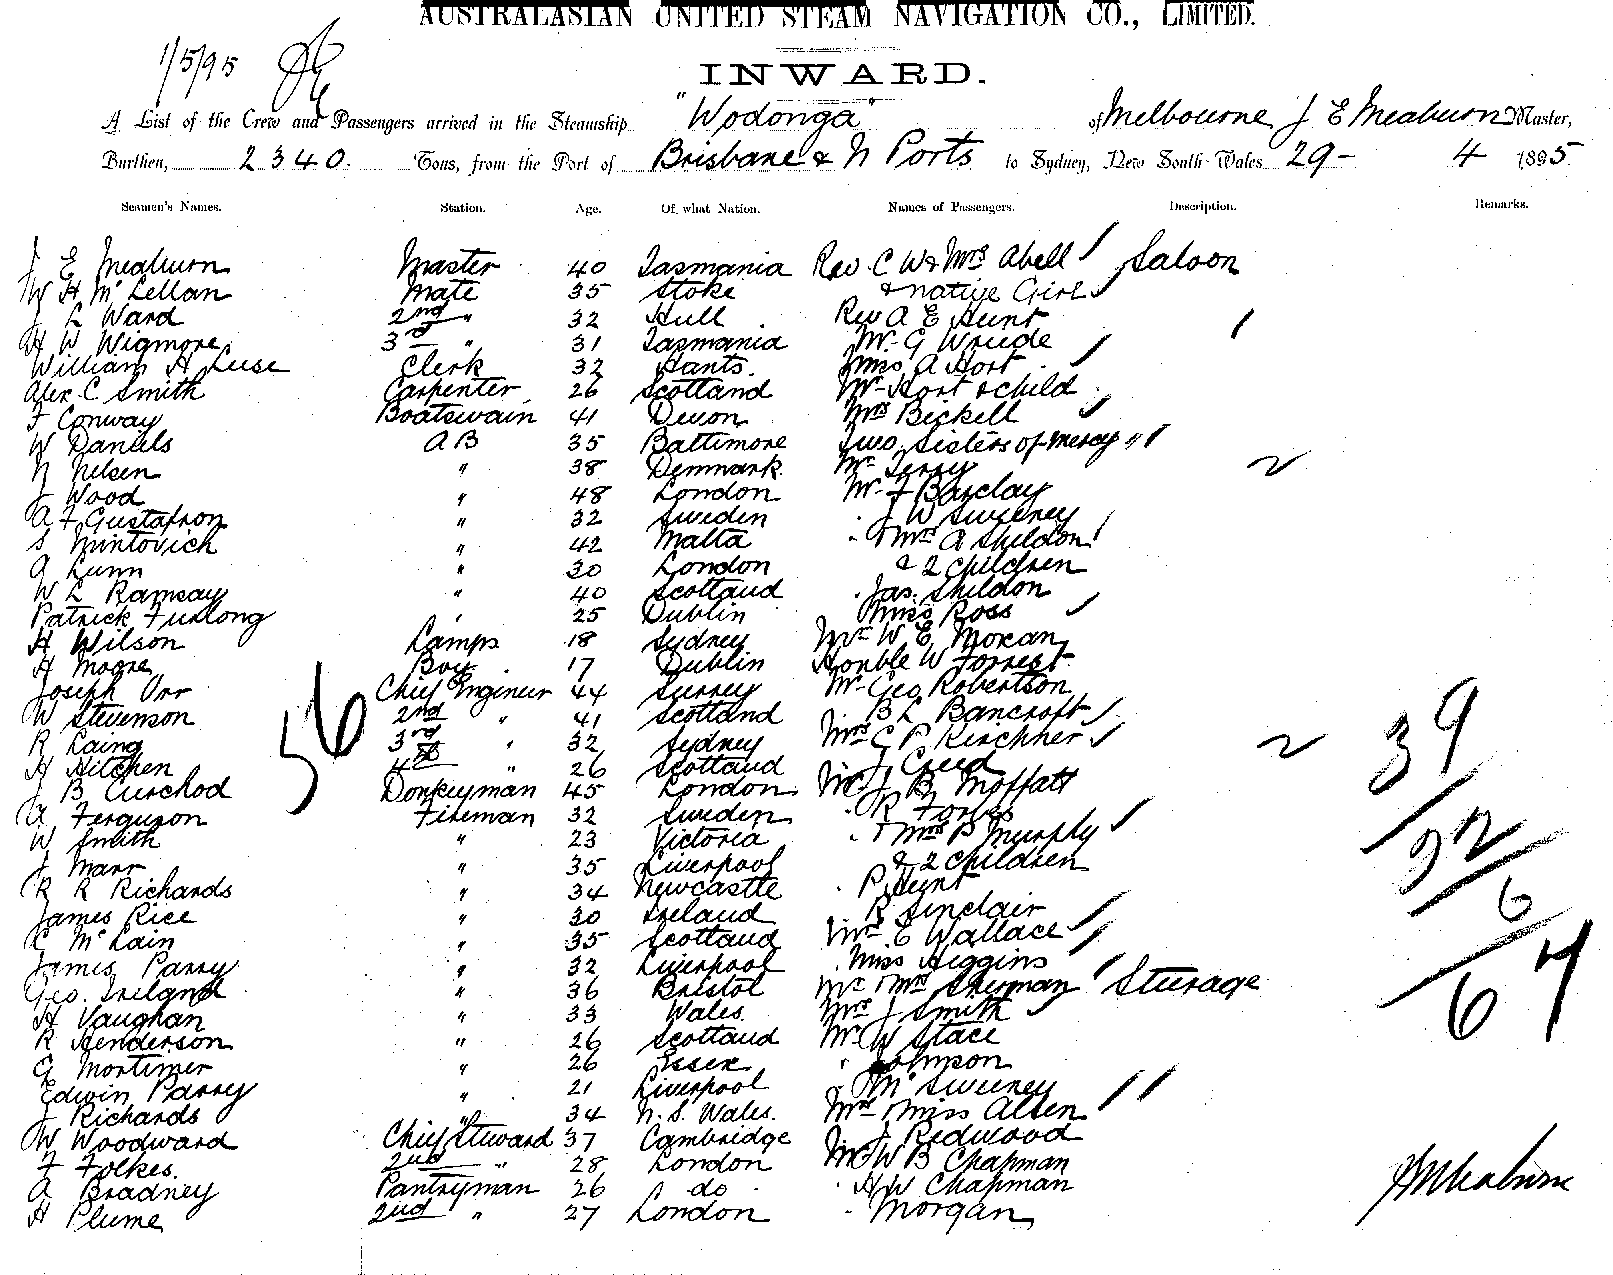 AUSTRALASIAN UNITED STEAM NAVIGATION CO., LIMITED.
1/5/95
INWARD.
A List of the Crew and Passengers arrived in the Steamship "Wodonga" of Melbourne J E Meaburn Master,
Burthen, 2340. Tons, from the Port of Brisbane & N Ports to Sydney, New South Wales 29- 4 1895
Seamen's Names. Station. Age. Of what Nation. Names of Passengers. Description. Remarks.
J E Meaburn Master 40 Tasmania Rev. C W & Mrs Abell Saloon
W H McLellan Mate 35 Stoke & native Girl
J L Ward 2nd " 32 Hull Rev A E Hunt
H W Wigmore 3rd " 31 Tasmania Mr G Wriede
William H Luse Clerk 32 Hants. Miss A Hort
Alex C Smith Carpenter 26 Scotland Mr Hort & child
F Conway Boatswain 41 Devon Mrs Bickell
W Daniels AB 35 Baltimore Two Sisters of Mercy
N Nelsen " 38 Denmark Mr Terry
J Wood " 48 London Mr F Barclay
A F Gustafson " 32 Sweden J W Sweeney
S Mintovich " 42 Malta " & Mrs A Sheldon
A Lunn " 30 London & 2 children
W L Ramsay " 40 Scotland Jas. Sheldon
Patrick Furlong " 25 Dublin Miss Ross
H Wilson Lamps 18 Sydney Mr W E Moran
H Moore Boy 17 Dublin Honble W Forrest
Joseph Orr Chief Engineer 44 Surrey Mr Geo Robertson
W Stevenson 2nd " 41 Scotland B L Bancroft
R Laing 3rd " 32 Sydney Mrs C P Kirchner
H Hitchen 4th " 26 Scotland J Creed
J B Curchod Donkeyman 45 London Mr J B Moffatt
A Ferguson Fireman 32 Sweden " R Forbes
W Smith " 23 Victoria " & Mrs P Murphy
J Marr " 35 Liverpool & 2 children
R R Richards " 34 Newcastle " P Hunt
James Rice " 30 Ireland R Sinclair
McLain " 35 Scotland Mrs E Wallace
James Parry " 32 Liverpool Miss Higgins
Geo. Ireland " 36 Bristol Mr & Mrs Sherman Steerage
H Vaughan " 33 Wales. Mrs J Smith
R Henderson " 26 Scotland Mr W Stace
G Mortimer " 26 Essex " Johnson
Edwin Parry " 21 Liverpool McSweeney
J Richards " 34 N. S. Wales. Mrs & Miss Alsen
W Woodward Chief Steward 37 Cambridge J Redwood
F Folkes. 2nd " 28 London Mr W B Chapman
A Bradney Pantryman 26 do " H W Chapman
H Plume 2nd " 27 London " Morgan
56
39
22
6
67
J E Meaburn